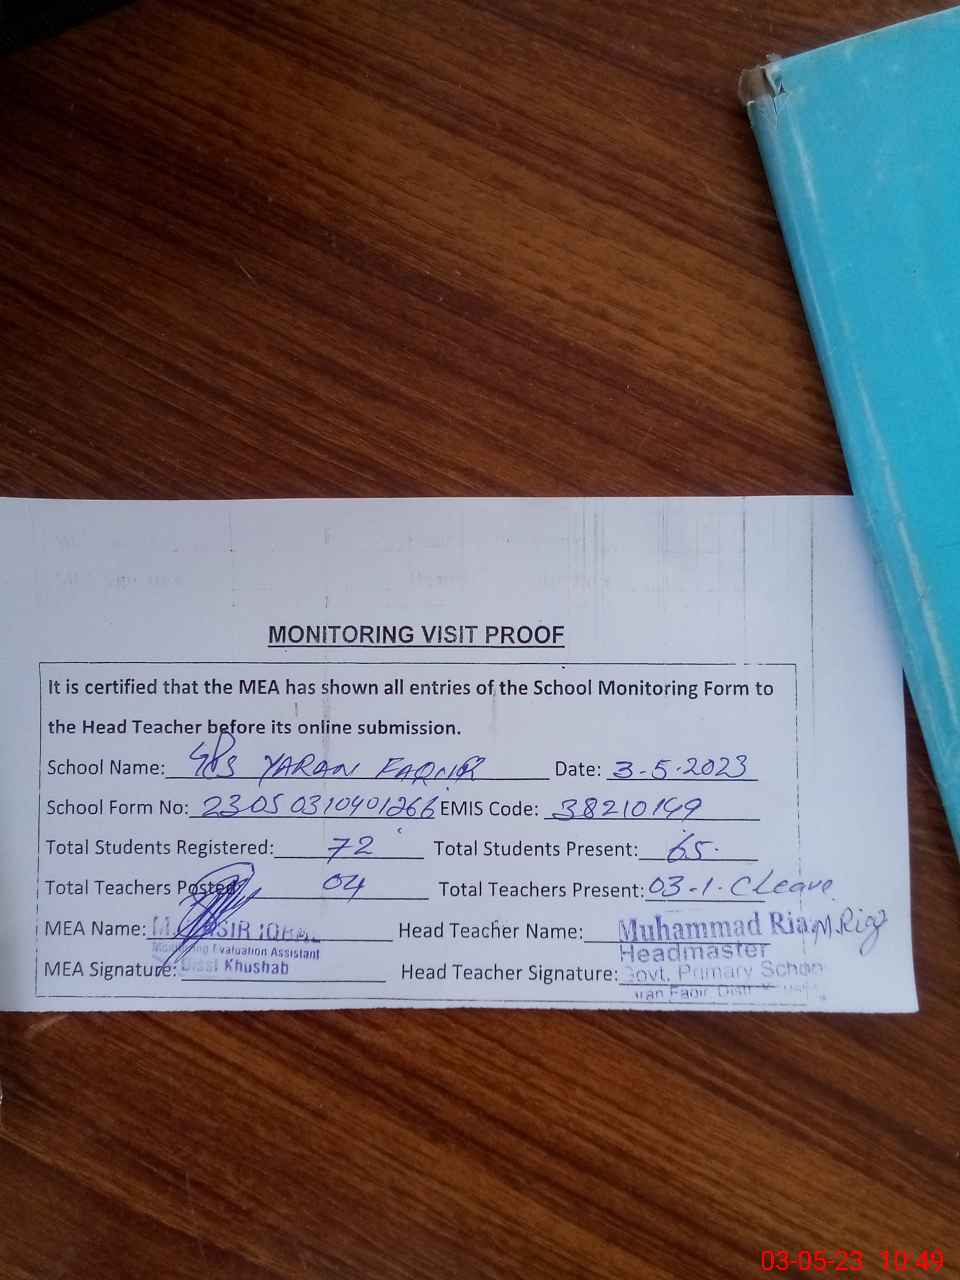 MONITORING VISIT PROOF
It is certified that the MEA has shown all entries of the School Monitoring Form to
the Head Teacher before its online submission.
School Name: GPS YARAN FAQIR Date: 3-5-2023
School Form No: 23050310401266 EMIS Code: 38210149
Total Students Registered: 72 Total Students Present: 65.
Total Teachers Posted: 04 Total Teachers Present: 03-1. C Leave
MEA Name: M. IQBAL Head Teacher Name: Muhammad Riaz M. Riaz
Monitoring Evaluation Assistant Headmaster
MEA Signature: Disst Khushab Head Teacher Signature: Govt. Primary School
Faqir Distt
03-05-23 10:49